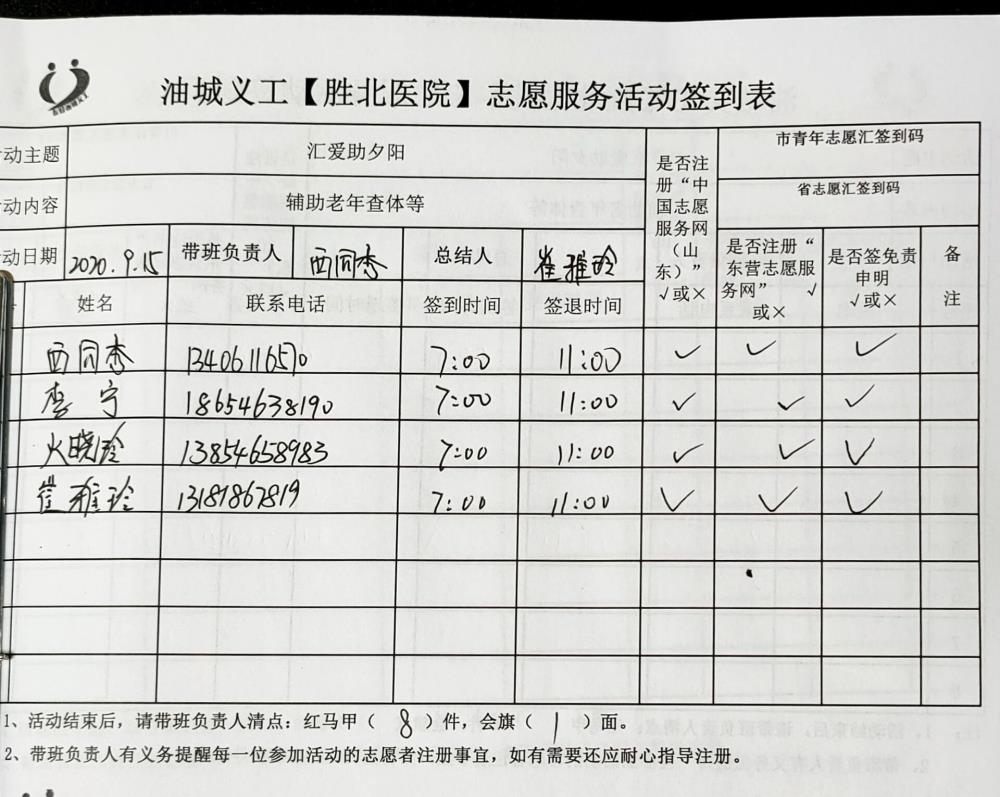 油城义工【胜北医院】志愿服务活动签到表
动主题 汇爱助夕阳 是否注册“中国志愿服务网（山东）” √或× 市青年志愿汇签到码
动内容 辅助老年查体等 省志愿汇签到码
动日期 2020.9.15 带班负责人 西同秀 总结人 崔雅玲 是否注册“东营志愿服务网” √或× 是否签免责申明 √或× 备注
姓名 联系电话 签到时间 签退时间
西同秀 13406116570 7:00 11:00 ✓ ✓ ✓
李宁 18654638190 7:00 11:00 ✓ ✓ ✓
火晓玲 13854658983 7:00 11:00 ✓ ✓ ✓
崔雅玲 13181867819 7:00 11:00 ✓ ✓ ✓
1、活动结束后，请带班负责人清点：红马甲（8）件，会旗（1）面。
2、带班负责人有义务提醒每一位参加活动的志愿者注册事宜，如有需要还应耐心指导注册。